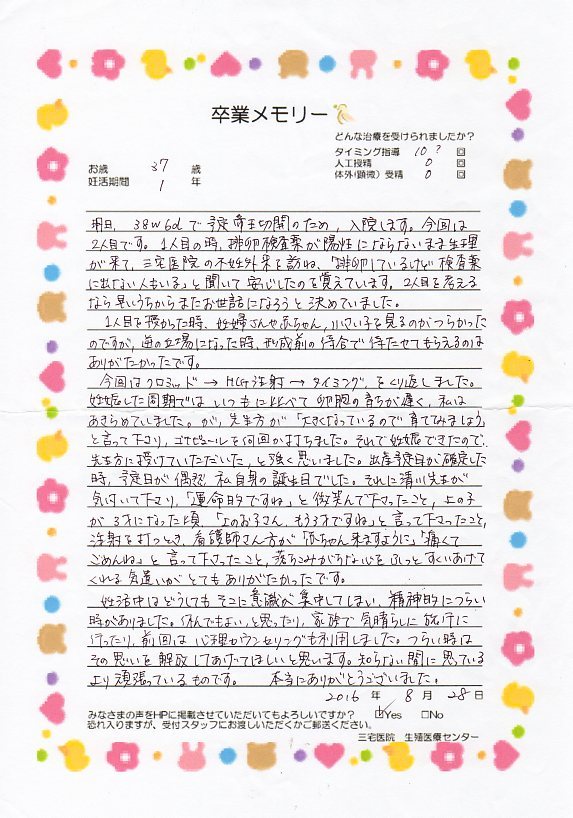 卒業メモリー
どんな治療を受けられましたか?
タイミング指導 10? 回
人工授精 0 回
体外(顕微)受精 0 回
お歳 37 歳
妊活期間 1 年
明日、38w6dで予定帝王切開のため、入院します。今回は
2人目です。1人目の時、排卵検査薬が陽性にならないまま生理
が来て、三宅医院の不妊外来を訪ね、「排卵しているけど検査薬
に出ない人もいる」と聞いて安心したのを覚えています。2人目を考える
なら早いうちからまたお世話になろうと決めていました。
1人目を授かった時、妊婦さんや赤ちゃん、小さい子を見るのがつらかった
のですが、逆の立場になった時、形成前の待合で待たせてもらえるのは
ありがたかったです。
今回はクロミッド→HCG注射→タイミング、をくり返しました。
妊娠した周期では いつもに比べて 卵胞の育ちが遅く、私は
あきらめていました。が、先生方が「大きくなっているので育てみましょう」
と言って下さり、ゴナピュールを何回か打ちました。それで妊娠できたので、
先生方に授けていただいた、と強く思いました。出産予定日が確定した
時、予定日が偶然 私自身の誕生日でした。それに清川先生が
気付いて下さり、「運命的ですね」と微笑んで下さったこと、上の子
が3才になった頃「上のお子さん、もう3才ですね」と言って下さったこと、
注射を打つとき、看護師さん方が「赤ちゃん来ますように」「痛くて
ごめんね」と言って下さったこと、落ちこみがちな心をふっとすくいあげて
くれる気遣いがとてもありがたかったです。
妊活中はどうしてもそこに意識が集中してしまい、精神的につらい
時がありました。休んでもよい、と思ったり、家族で気晴らしに旅行に
行ったり、前回は心理カウンセリングも利用しました。つらい時は
その思いを解放してあげてほしいと思います。知らない間に思っている
より頑張っているものです。 本当にありがとうございました。
2016 年 8 月 28 日
みなさまの声をHPに掲載させていただいてもよろしいですか? ☑Yes □No
恐れ入りますが、受付スタッフにお渡しいただくかご郵送ください。
三宅医院 生殖医療センター